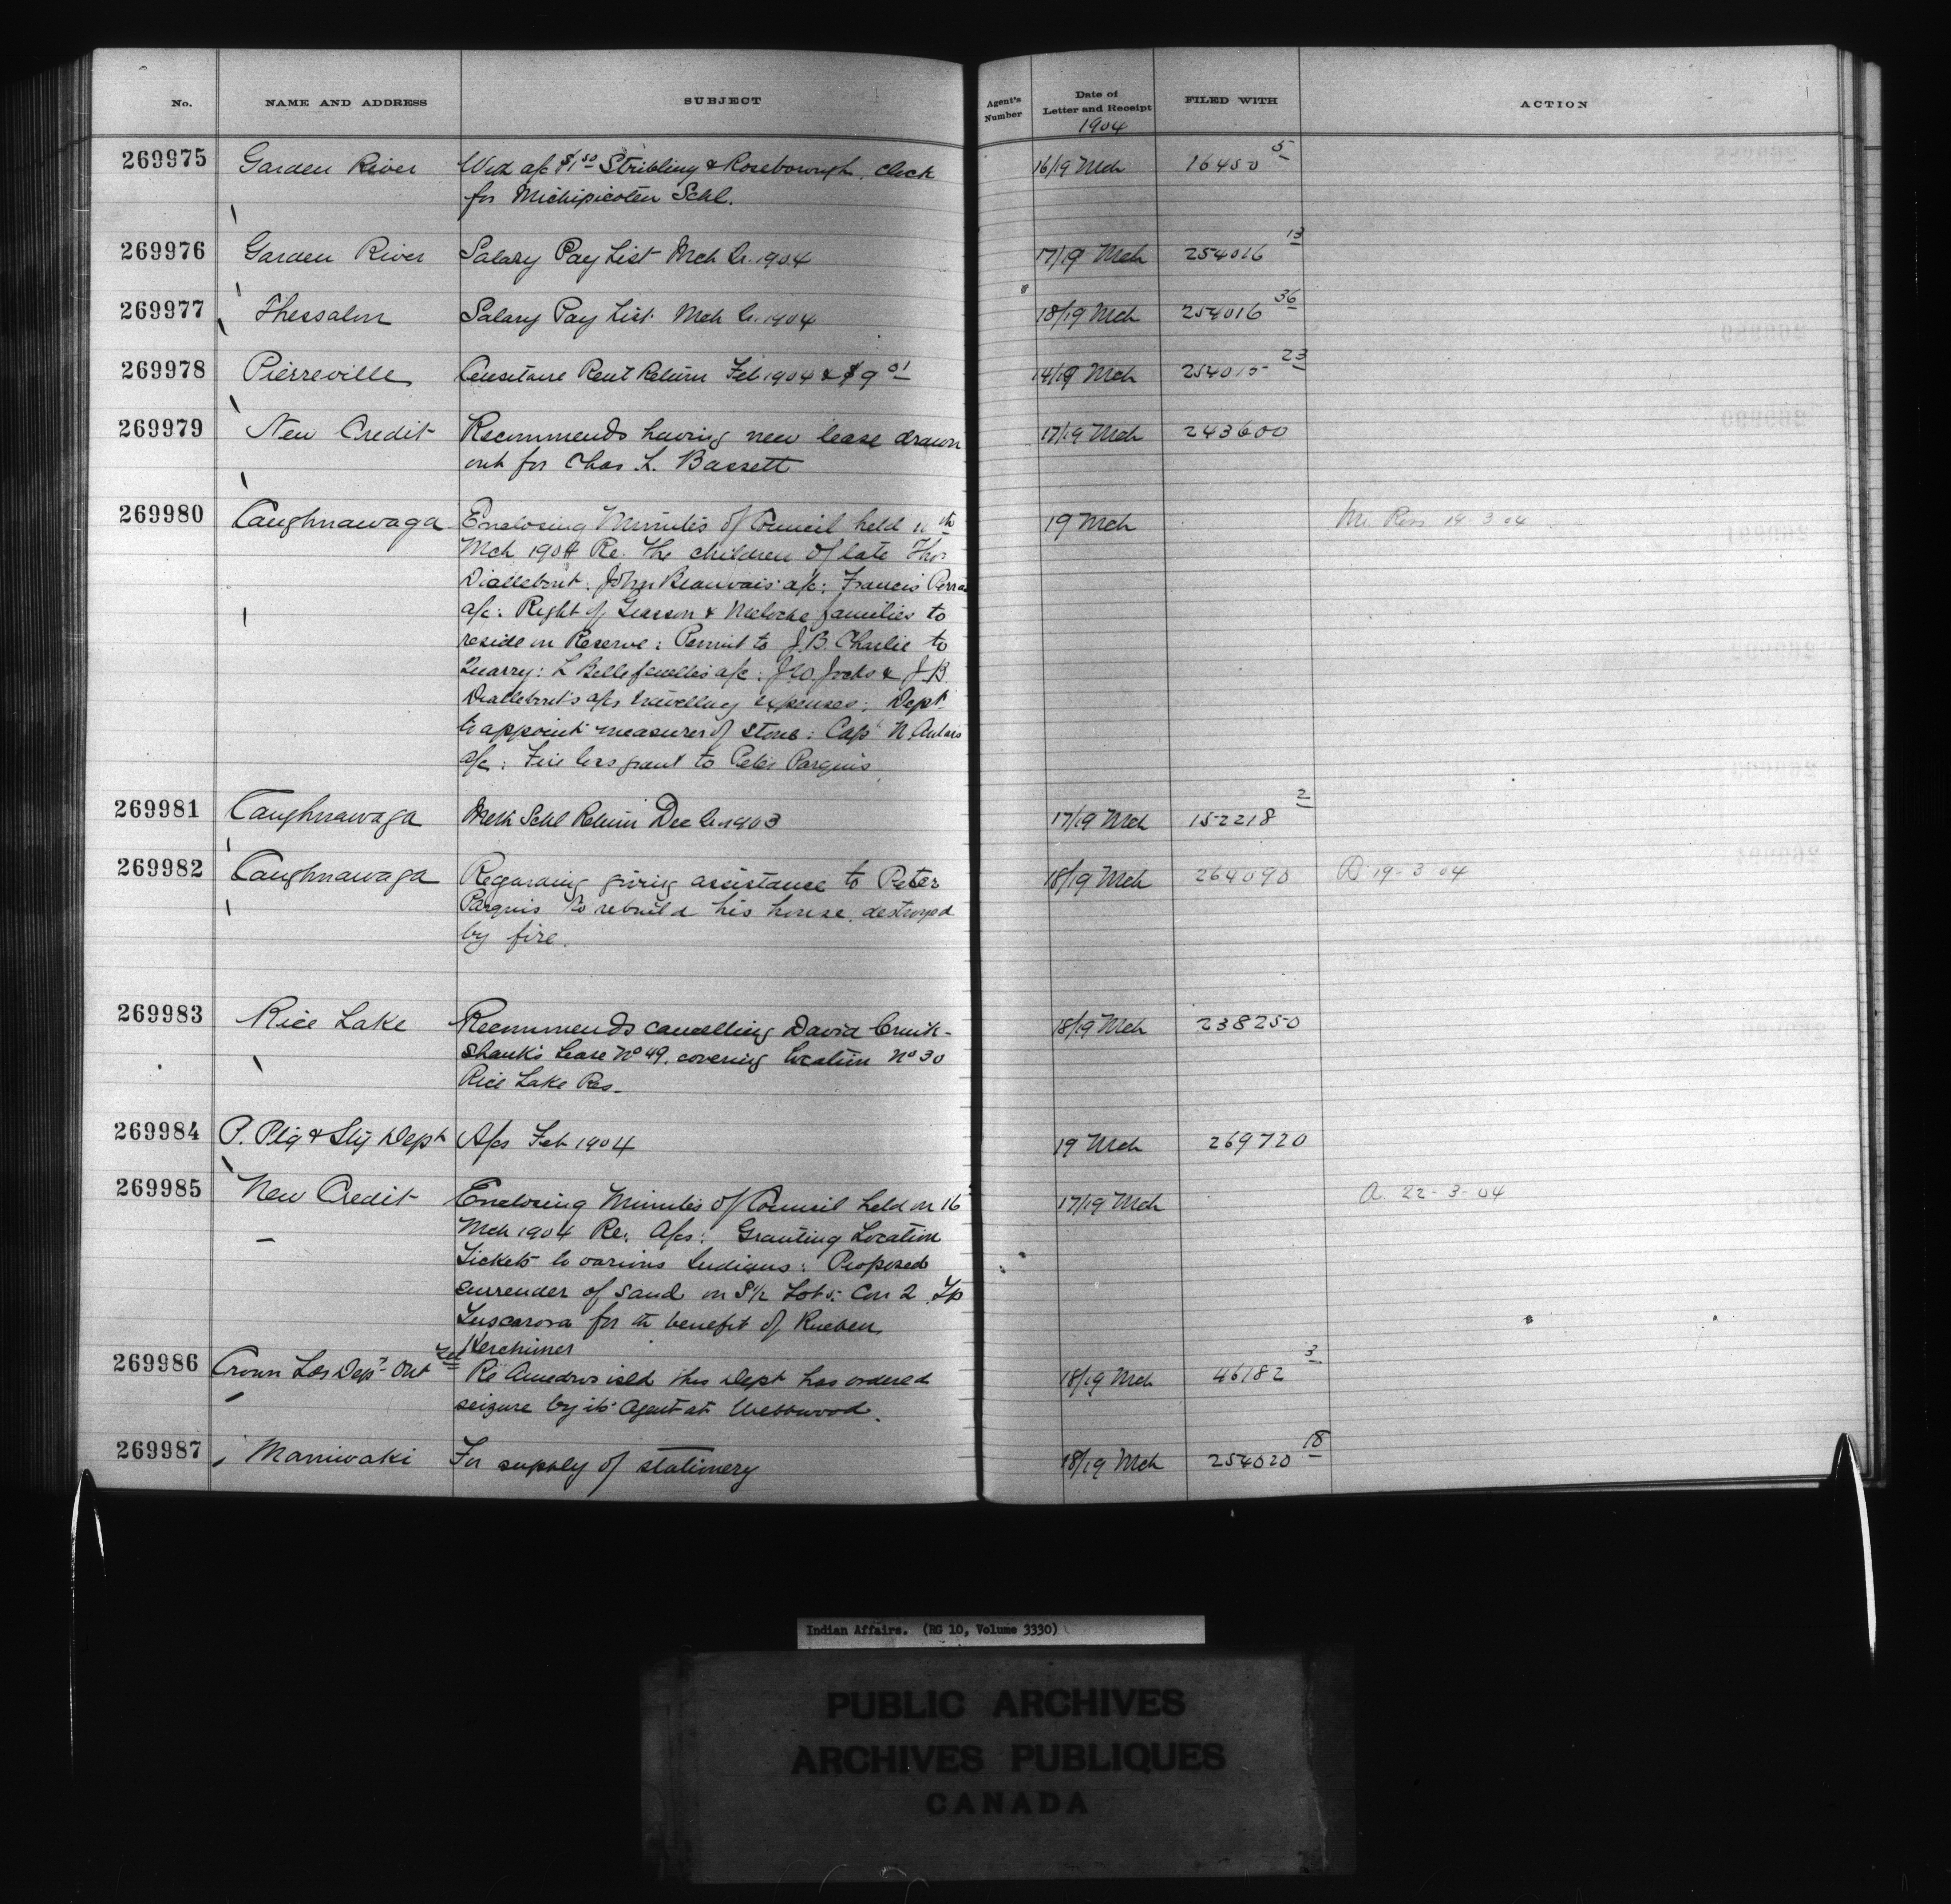 No. NAME AND ADDRESS SUBJECT Agent's Number Date of Letter and Receipt FILED WITH ACTION
1904
269975 Garden River Wid a/c $1 50 Stribling & Roseborough, clock 16/19 Mch 16450 5
for Michipicoten Schl.
269976 Garden River Salary Pay List Mch Qr. 1904 17/19 Mch 254016 13
269977 Thessalon Salary Pay List Mch Qr. 1904 18/19 Mch 254016 36
269978 Pierreville Censitaire Rent Return Feb 1904 & $9 01 14/19 Mch 254015 23
269979 New Credit Recommends having new lease drawn 17/19 Mch 243600
out for Chas. L. Bassett
269980 Caughnawaga Enclosing Minutes of Council held th 19 Mch Mr. Ross 19-3-04
Mch 1904 Re. The children of late Thos
Diallebout. John Beauvais' a/c: Francis
a/c: Right of Giasson & Meloche families to
reside on Reserve: Permit to J.B. Charlie to
Quarry: L Bellefeuilles a/c: Jocks & J B
Diallebout's a/cs travelling expenses: Dept.
to appoint measurer of stone: Capt N.
a/c: Fire loss grant to Peter Parquis
269981 Caughnawaga Meth Schl Return Dec Qr 1903 17/19 Mch 152218 2
269982 Caughnawaga Regarding giving assistance to Peter 18/19 Mch 264090 D 19-3-04
Parquis to rebuild his house, destroyed
by fire.
269983 Rice Lake Recommends cancelling David Cruik- 18/19 Mch 238250
shank's Lease No 49, covering location No 30
Rice Lake Res.
269984 P. Ptg & Sty Dept A/cs Feb 1904 19 Mch 269720
269985 New Credit Enclosing Minutes of Council held on 16 17/19 Mch A. 22-3-04
Mch 1904 Re. A/cs: Granting Location
Tickets to various Indians: Proposed
surrender of sand on S½ Lot 5. Con 2 Tp
Tuscarora for the benefit of Rueben
Kerchimer
269986 Crown Lds Dept. Ont Re this Dept has ordered 18/19 Mch 46182 3
seizure by its agent at Webbwood.
269987 Maniwaki For supply of stationery 18/19 Mch 254020 18
Indian Affairs. (RG 10, Volume 3330)
PUBLIC ARCHIVES
ARCHIVES PUBLIQUES
CANADA